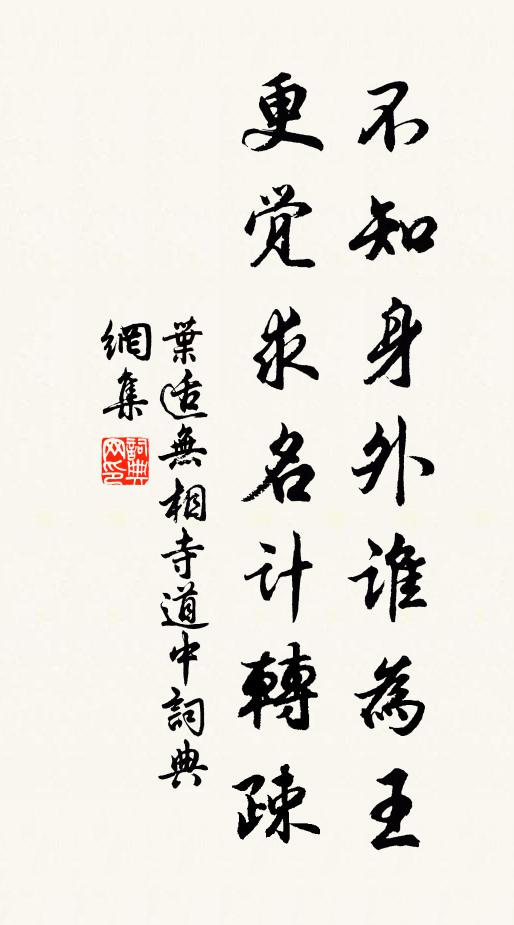 不知身外谁為王
更覚求名计轉疎
葉适無相寺道中詞典
網集
詞典网印